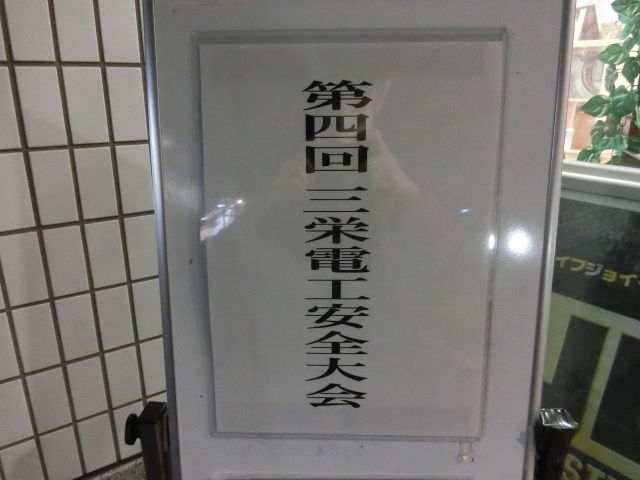 第四回 三栄電工安全大会
イフジョイ